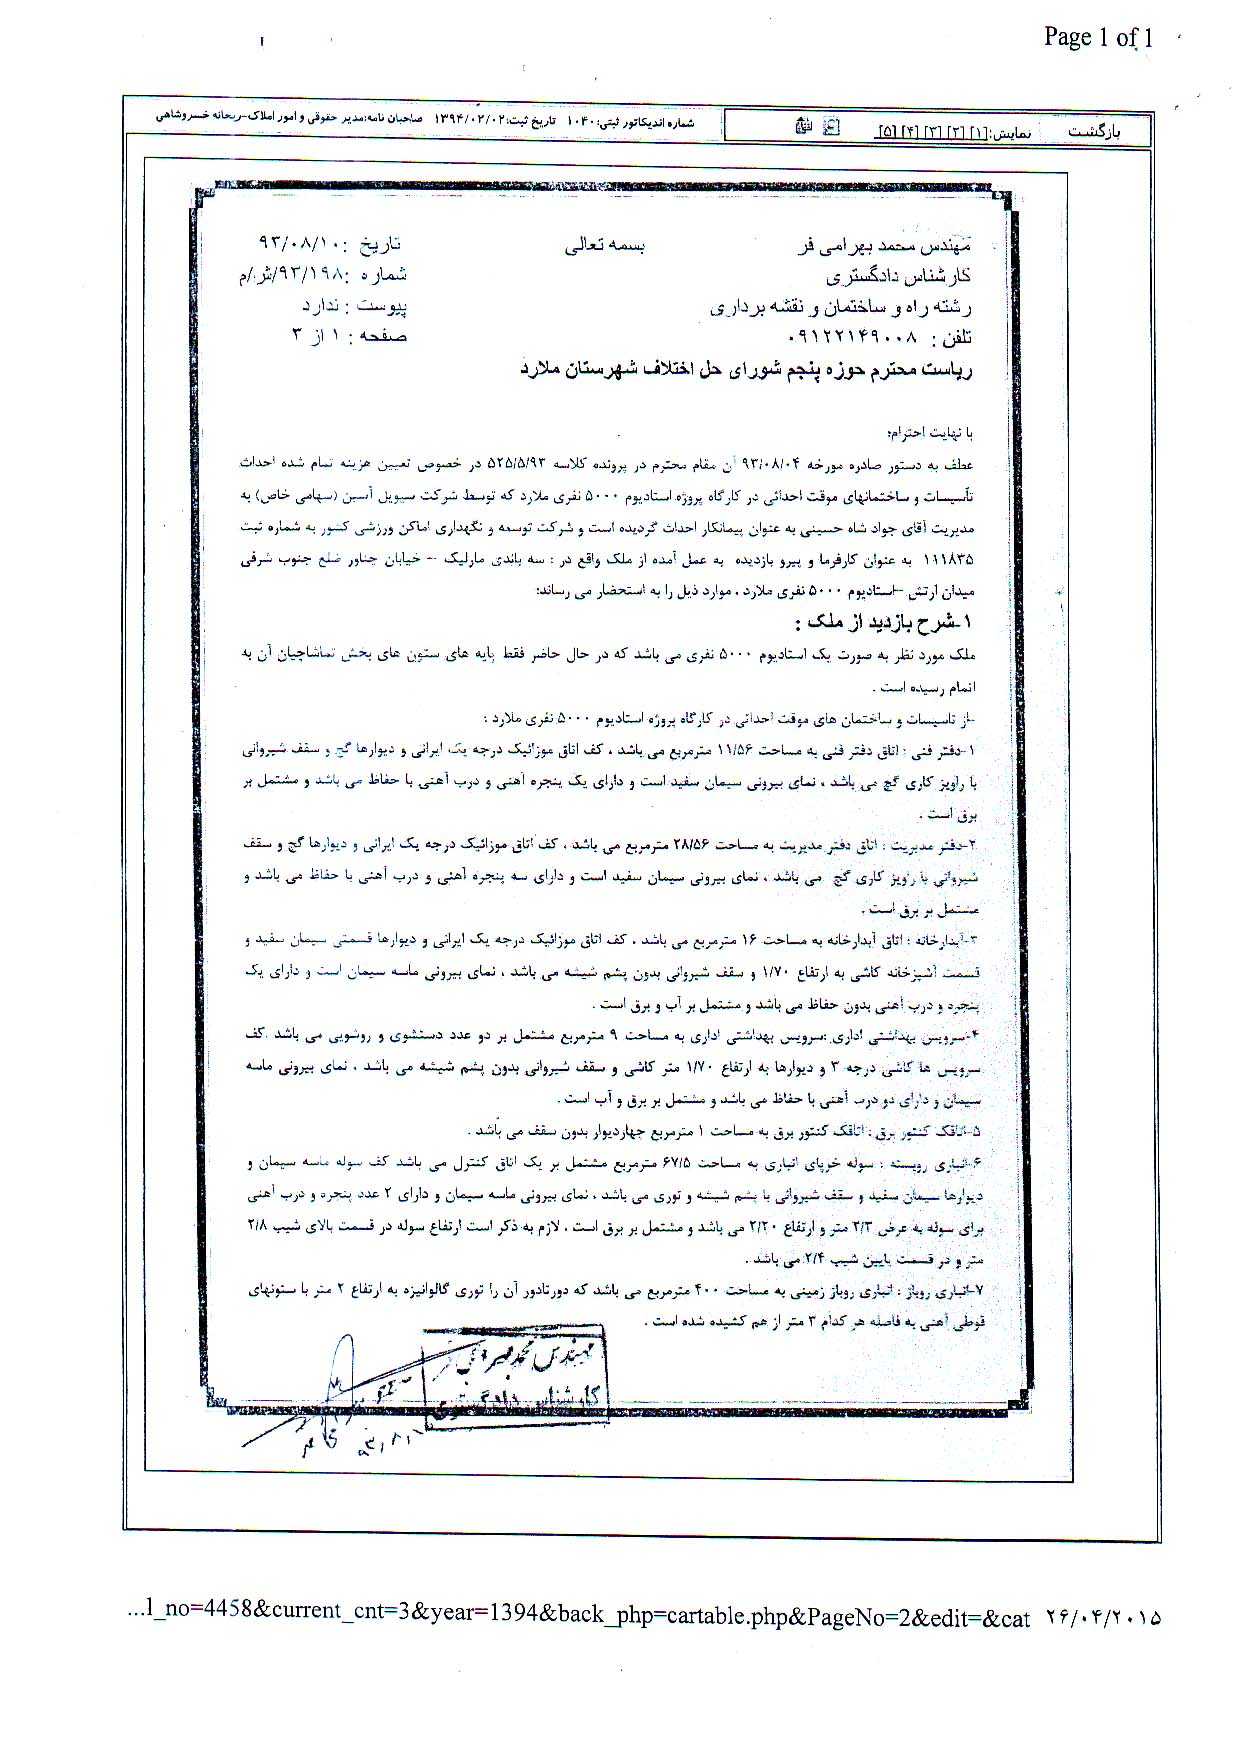 Page 1 of 1
بازگشت نمایش:[۱] [۲] [۳] [۴] [۵] شماره اندیکاتور ثبتی:۱۰۴۰ تاریخ ثبت:۱۳۹۴/۰۲/۰۲ صاحبان نامه:مدیر حقوقی و امور املاک-ریحانه خسروشاهی
مهندس محمد بهرامی فر بسمه تعالی تاریخ :۹۳/۰۸/۱۰
کارشناس دادگستری شماره :۹۳/۱۹۸/ش/م
رشته راه و ساختمان و نقشه برداری پیوست : ندارد
تلفن : ۰۹۱۲۲۱۴۹۰۰۸ صفحه : ۱ از ۳
ریاست محترم حوزه پنجم شورای حل اختلاف شهرستان ملارد
با نهایت احترام؛
عطف به دستور صادره مورخه ۹۳/۰۸/۰۴ آن مقام محترم در پرونده کلاسه ۵۲۵/۵/۹۳ در خصوص تعیین هزینه تمام شده احداث
تأسیسات و ساختمانهای موقت احداثی در کارگاه پروژه استادیوم ۵۰۰۰ نفری ملارد که توسط شرکت سیویل آسین (سهامی خاص) به
مدیریت آقای جواد شاه حسینی به عنوان پیمانکار احداث گردیده است و شرکت توسعه و نگهداری اماکن ورزشی کشور به شماره ثبت
۱۱۱۸۳۵ به عنوان کارفرما و پیرو بازدیده به عمل آمده از ملک واقع در : سه باندی مارلیک -- خیابان چناور ضلع جنوب شرقی
میدان ارتش -استادیوم ۵۰۰۰ نفری ملارد ، موارد ذیل را به استحضار می رساند:
۱-شرح بازدید از ملک :
ملک مورد نظر به صورت یک استادیوم ۵۰۰۰ نفری می باشد که در حال حاضر فقط پایه های ستون های بخش تماشاچیان آن به
اتمام رسیده است .
-از تاسیسات و ساختمان های موقت احداثی در کارگاه پروژه استادیوم ۵۰۰۰ نفری ملارد :
۱-دفتر فنی : اتاق دفتر فنی به مساحت ۱۱/۵۶ مترمربع می باشد ، کف اتاق موزائیک درجه یک ایرانی و دیوارها گچ و سقف شیروانی
با رابویز کاری گچ می باشد ، نمای بیرونی سیمان سفید است و دارای یک پنجره آهنی و درب آهنی با حفاظ می باشد و مشتمل بر
برق است .
۲-دفتر مدیریت : اتاق دفتر مدیریت به مساحت ۲۸/۵۶ مترمربع می باشد ، کف اتاق موزائیک درجه یک ایرانی و دیوارها گچ و سقف
شیروانی با رابویز کاری گچ می باشد ، نمای بیرونی سیمان سفید است و دارای سه پنجره آهنی و درب آهنی با حفاظ می باشد و
مشتمل بر برق است .
۳-آبدارخانه : اتاق آبدارخانه به مساحت ۱۶ مترمربع می باشد ، کف اتاق موزائیک درجه یک ایرانی و دیوارها قسمتی سیمان سفید و
قسمت آشپزخانه کاشی به ارتفاع ۱/۷۰ و سقف شیروانی بدون پشم شیشه می باشد ، نمای بیرونی ماسه سیمان است و دارای یک
پنجره و درب آهنی بدون حفاظ می باشد و مشتمل بر آب و برق است .
۴-سرویس بهداشتی اداری :سرویس بهداشتی اداری به مساحت ۹ مترمربع مشتمل بر دو عدد دستشوی و روشویی می باشد کف
سرویس ها کاشی درجه ۳ و دیوارها به ارتفاع ۱/۷۰ متر کاشی و سقف شیروانی بدون پشم شیشه می باشد ، نمای بیرونی ماسه
سیمان و دارای دو درب آهنی با حفاظ می باشد و مشتمل بر برق و آب است .
۵-اتاقک کنتور برق : اتاقک کنتور برق به مساحت ۱ مترمربع چهاردیوار بدون سقف می باشد .
۶-انباری روبسته : سوله خرپای انباری به مساحت ۶۷/۵ مترمربع مشتمل بر یک اتاق کنترل می باشد کف سوله ماسه سیمان و
دیوارها سیمان سفید و سقف شیروانی با پشم شیشه و توری می باشد ، نمای بیرونی ماسه سیمان و دارای ۲ عدد پنجره و درب آهنی
برای سوله به عرض ۲/۳ متر و ارتفاع ۲/۲۰ می باشد و مشتمل بر برق است ، لازم به ذکر است ارتفاع سوله در قسمت بالای شیب ۲/۸
متر و در قسمت پایین شیب ۲/۴ می باشد .
۷-انباری روباز : انباری روباز زمینی به مساحت ۴۰۰ مترمربع می باشد که دورتادور آن را توری گالوانیزه به ارتفاع ۲ متر با ستونهای
قوطی آهنی به فاصله هر کدام ۳ متر از هم کشیده شده است .
مهندس محمد بهرامی فر
کارشناس دادگستری
...l_no=4458&current_cnt=3&year=1394&back_php=cartable.php&PageNo=2&edit=&cat ۲۶/۰۴/۲۰۱۵